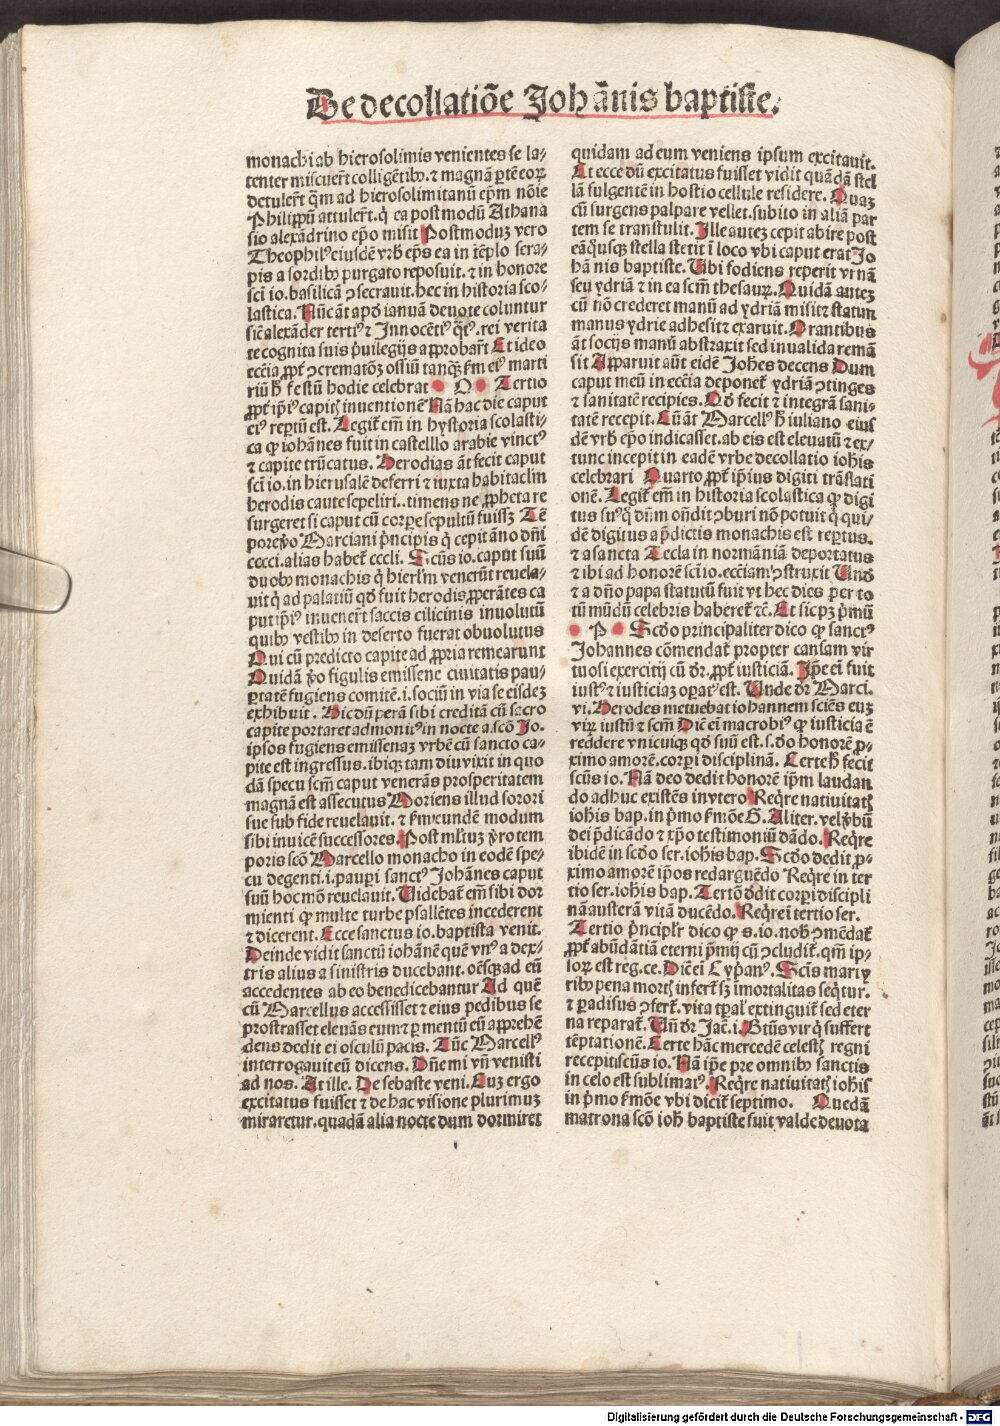 De decollatiōe Johānis baptiste.
monachi ab hierosolimis venientes se la-
tenter miscuer̄t colligētibꝰ. ⁊ magnā ꝑtē eoꝝ
detuler̄t q̄m ad hierosolimitanū ep̄m nōie
Philippū attuler̄t. q̄ ea postmodū Athana
sio alexādrino ep̄o misit Postmoduꝫ vero
Theophilꝰ eiusdē vrb̄ ep̄s ea in tēplo sera-
pis a sordibꝰ purgato reposuit. ⁊ in honore
sci io. basilicā ꝯsecrauit. hec in historia sco-
lastica. Nūc āt apd̄ ianuā deuote coluntur
sic̄ alexāder tertiꝰ ⁊ Innocētiꝰ q̄rtꝰ. rei verita
te cognita suis p̄uilegijs approbar̄t Et ideo
eccīa ꝓpt̄ ꝯcrematōꝫ ossiū tanqꝫ fm eiꝰ marti
riū h̄ festū hodie celebrat O Tertio
ꝓpt̄ ip̄iꝰ capitꝭ inuentionē Nā hac die caput
eiꝰ reꝑtū est. Legit̄ em̄ in hystoria scolasti-
ca ꝙ iohānes fuit in castelllo arabie vinctꝰ
⁊ capite trūcatus. Herodias āt fecit caput
sci io. in hierusalē deferri ⁊ iuxta habitaclm̄
herodis caute sepeliri.. timens ne ꝓpheta re
surgeret si caput cū corꝑe sepultū fuissꝫ Tē
pore ꝟo Marciani p̄ncipis q̄ cepit āno dn̄i
cccci. alias habet̄ cccli. Sc̄us io. caput suū
duobꝰ monachis q̄ hierl̄m venerūt reuela-
uit q̄ ad palatiū qd̄ fuit herodis ꝓperātes ca
put ip̄iꝰ inuener̄t saccis cilicinis inuolutū
quibꝰ vestibꝰ in deserto fuerat obuolutus
Qui cū predicto capite ad ꝓpria remearunt
Quidā ꝟo figulis emissene ciuitatis pau-
ꝑtatē fugiens comitē. i. sociū in via se eisdeꝫ
exhibuit. Hic dū perā sibi creditā cū sacro
capite portaret admonitꝰ in nocte a scō Jo.
ipsos fugiens emissenaꝫ vrbē cū sancto ca-
pite est ingressus. ibiqꝫ tam diu vixit in quo
dā specu scm̄ caput venerās prosperitatem
magnā est assecutus Moriens illud sorori
sue sub fide reuelauit. ⁊ fm eundē modum
sibi inuicē successores. Post ml̄tuꝫ ꝟro tem
poris scō Marcello monacho in eodē spe-
cu degenti. i. pauꝑi sanctꝰ Johānes caput
suū hoc mō reuelauit. Uidebat̄ em̄ sibi dor
mienti ꝙ multe turbe psallētes incederent
⁊ dicerent. Ecce sanctus io. baptista venit.
Deinde vidit sanctū iohānē quē vnꝰ a dex-
tris alius a sinistris ducebant. oēsqꝫ ad eū
accedentes ab eo benedicebantur Ad quē
cū Marcellus accessisset ⁊ eius pedibus se
prostrasset eleuās eum ⁊ ꝑ mentū eū apprehē
dens dedit ei osculū pacis. Tūc Marcellꝰ
interrogauit eū dicens. Dn̄e mi vn̄ venisti
ad nos. At ille. De sebaste veni. Cuꝫ ergo
excitatus fuisset ⁊ de hac visione plurimuꝫ
miraretur. quadā alia nocte dum dormiret
quidam ad eum veniens ipsum excitauit.
Et ecce dū excitatus fuisset vidit quādā stel
lā fulgentē in hostio cellule residere. Quaꝫ
cū surgens palpare vellet. subito in aliā par
tem se transtulit. Ille auteꝫ cepit abire post
eā q̄usqꝫ stella stetit ī loco vbi caput erat Jo
hānis baptiste. Ubi fodiens reperit vrnā
seu ydriā ⁊ in ea scm̄ thesauꝝ. Quidā auteꝫ
cū nō crederet manū ad ydriā misit ⁊ statim
manus ydrie adhesit ⁊ exaruit. Orantibus
āt socijs manū abstraxit sed inualida remā
sit Apparuit aūt eidē Joh̄es decens Dum
caput meū in eccīa deponet̄ ydriā ꝯtinges
⁊ sanitatē recipies. Qd̄ fecit ⁊ integrā sani-
tatē recepit. Cū āt Marcellꝰ h̄ iuliano eius
dē vrb̄ ep̄o indicasset. ab eis est eleuatū ⁊ ex-
tunc incepit in eadē vrbe decollatio ioh̄is
celebrari Quarto ꝓpt̄ ip̄ius digiti trāslati
onē. Legit̄ em̄ in historia scolastica ꝙ digi
tus suꝰ q̄ dn̄m on̄dit ꝯburi nō potuit q̄ qui-
dē digitus a p̄dictis monachis est reꝑtus.
⁊ a sancta Tecla in normāniā deportatus
⁊ ibi ad honorē sci io. eccīam ꝯstruxit Unde
⁊ a dn̄o papa statutū fuit vt hec dies per to
tū mūdū celebris haberet̄ ⁊c̄. Et sic pꝫ p̄mū
P Scd̄o principaliter dico ꝙ sanctꝰ
Johannes cōmendat̄ propter cansam vir
tuosi exercitij cū dr̄. ꝓpt̄ iusticiā. Ip̄e ei fuit
iustꝰ ⁊ iusticiaꝫ oꝑatꝰ est. Unde dr̄ Marci.
vi. Herodes metuebat iohannem sciēs euꝫ
viꝝ iustū ⁊ scm̄ Dic̄ ei macrobiꝰ ꝙ iusticia ē
reddere vnicuiqꝫ qd̄ suū est. s. d̄o honorē ꝓ-
ximo amorē. corꝑi disciplinā. Certe h̄ fecit
sc̄us io. Nā deo dedit honorē ip̄m laudan
do adhuc existēs in vtero Req̄re natiuitatꝭ
ioh̄is bap. in p̄mo f̄mōe G. Aliter. vel ꝟbū
dei p̄dicādo ⁊ xp̄o testimoniū dādo. Req̄re
ibidē in scd̄o ser. ioh̄is bap. Scd̄o dedit ꝓ-
ximo amorē ip̄os redarguēdo Req̄re in ter
tio ser. ioh̄is bap. Tertō d̄dit corꝑi discipli
nā austerā vitā ducēdo. Req̄re ī tertio ser.
Tertio p̄ncipl'r dico ꝙ s. io. nob̄ ꝯmēdat̄
ꝓpt̄ abūdātiā eterni p̄mij cū ꝯcludit̄. qm̄ ip-
soꝝ est reg. ce. Dic̄ ei Cyp̄anꝰ. Sc̄is martyꝝ
ribꝰ pena mortꝭ infert̄ sꝫ īmortalitas seq̄tur.
⁊ ꝑadisus ꝯfert̄. vita tꝑal' extinguit̄ sed eter
na reparat̄. Un̄ dr̄ Jac̄. i. Bt̄us vir q̄ suffert
tēptationē. Certe hāc mercedē celestꝭ regni
recepit sc̄us io. Nā ip̄e pre omnibꝰ sanctis
in celo est sublimatꝰ. Req̄re natiuitatꝭ ioh̄is
in p̄mo f̄mōe vbi dicit̄ septimo. Quedā
matrona scō ioh̄ baptiste fuit valde deuota
Digitalisierung gefördert durch die Deutsche Forschungsgemeinschaft - DFG